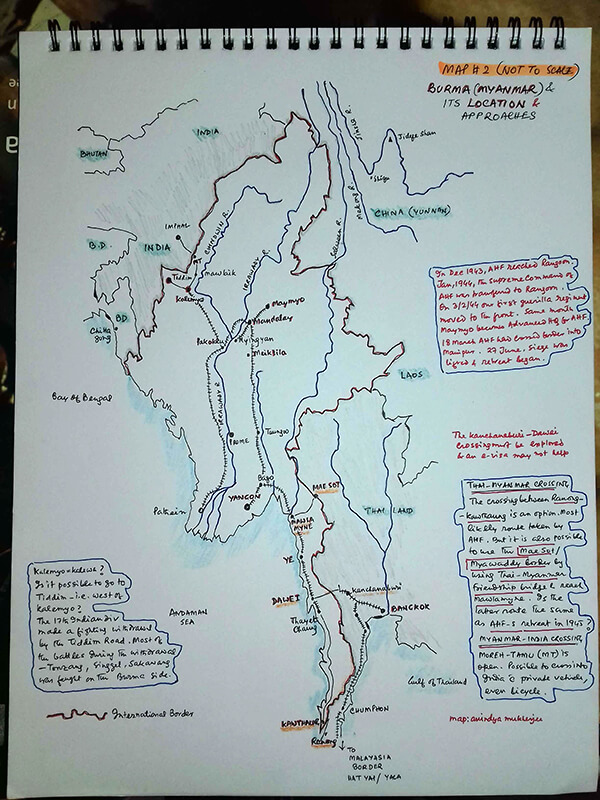 MAP # 2 (NOT TO SCALE)
BURMA (MYANMAR) &
ITS LOCATION &
APPROACHES
INDIA
BHUTAN
Jidege Shan
Shigu
CHINA (YUNNAN)
Mekong R.
Salween R.
IMPHAL
B.D.
INDIA
CHINDWIN R.
IRRAWADY R.
Tiddim
Mawlaik
Kalemyo
BD
Chitta
gong
Maymyo
Mandalay
Pakokku
Myingyan
Meiktila
LAOS
Bay of Bengal
IRRAWADY R.
PROME
Toungoo
Bago
YANGON
Pathein
MAE SOT
THAILAND
MAWLA
MYNE
YE
DAWEI
Kanchanaburi
BANGKOK
Thayet
Chaung
ANDAMAN
SEA
Gulf of Thailand
KAWTHAUNG
CHUMPHON
Ranong
TO
MALAYASIA
BORDER
HAT YAI / YALA
In Dec 1943, AHF reached Rangoon.
Jan, 1944, the Supreme Command of
AHF was transferred to Rangoon.
On 3/2/44 our first guerilla regiment
moved to the front. Same month
Maymyo became Advanced HQ for AHF
18 March AHF had crossed border into
Manipur. 27 June. Siege was
lifted & retreat began.
The Kanchanaburi - Dawei
crossing must be explored
& an e-visa may not help
THAI-MYANMAR CROSSING
The crossing between Ranong-
Kawthaung is an option most
likely route taken by
AHF. But it is also possible
to use the Mae Sot/
Myawaddy border by
using Thai-Myanmar
friendship bridge & reach
Mawlamyne. Is the
later route the same
as AHF-s retreat in 1945?
MYANMAR-INDIA CROSSING
MOREH-TAMU (MT) is
open. Possible to cross into
India c private vehicle,
even bicycle.
Kalemyo = kalewa?
Is it possible to go to
Tiddim - i.e. west of
Kalemyo?
The 17th Indian div
made a fighting withdrawal
by the Tiddim Road. Most of
the battles during the withdrawal
- Tonzang, Singgel, Sakawng
was fought on the Burma side.
International Border
map: anindya mukherjee